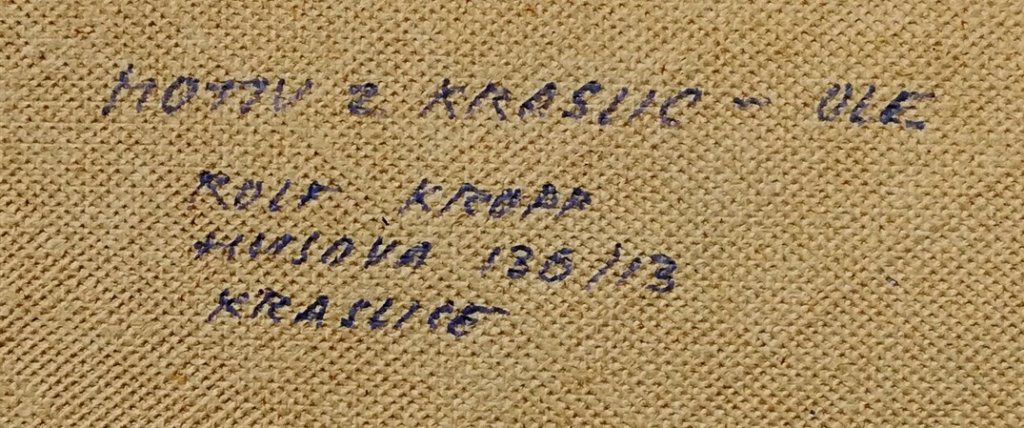 MOTIV Z KRASLIC - OLE
ROLF KROPP
HUSOVA 136/13
KRASLICE